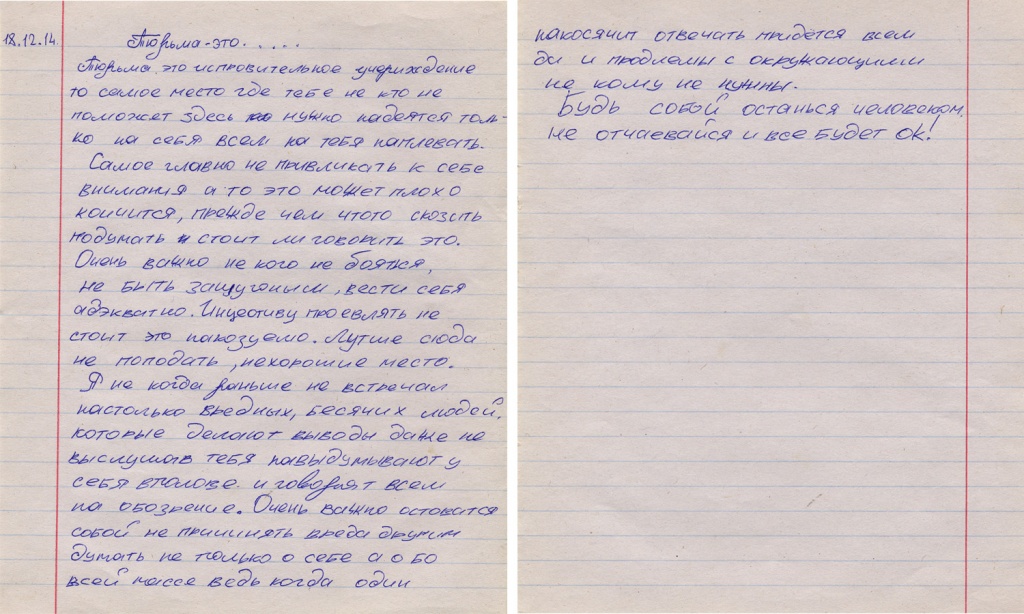 18.12.14.
Тюрьма-это.....
Тюрьма это исправительное учериждение
то самое место где тебе не кто не
поможет здесь нужно надеятся толь-
ко на себя всем на тебя наплевать.
Самое главно не привликать к себе
внимания а то это может плохо
кончится, прежде чем чтото скозать
подумать стоит ли говорить это.
Очень важно не кого не бояться,
не быть защуганым, вести себя
адэкватно. Инцеотиву проевлять не
стоит это наказуемо. Лутше сюда
не поподать, нехорошие место.
Я не когда раньше не встречал
настолько вредных, бесячих людей.
которые делают выводы даже не
выслушав тебя навыдумывают у
себя вголове и говорят всем
на обозрение. Очень важно остоватся
собой не причинять вреда другим
думать не только о себе а о бо
всей массе ведь когда один
накосячит отвечать придется всем
да и проблемы с окружающими
не кому не нужны.
Будь собой останься человеком.
не отчаевайся и все будет ок!